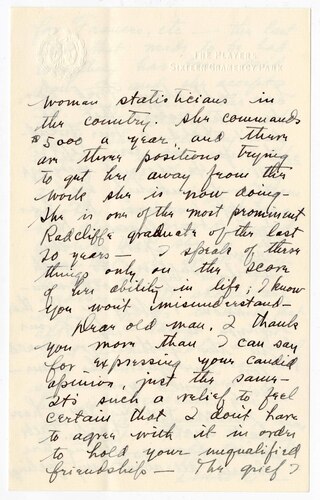 THE PLAYERS
SIXTEEN GRAMERCY PARK
woman statisticians in
the country. She commands
$5000 a year, and there
are three positions trying
to get her away from the
work she is now doing—
She is one of the most prominent
Radcliffe graduate of the last
20 years — I speak of these
things only on the score
of her ability in life; I know
you won't misunderstand—
Dear old man, I thank
you more than I can say
for expressing your candid
opinion, just the same—
It's such a relief to feel
certain that I don't have
to agree with it in order
to hold your unqualified
friendship — The grief I